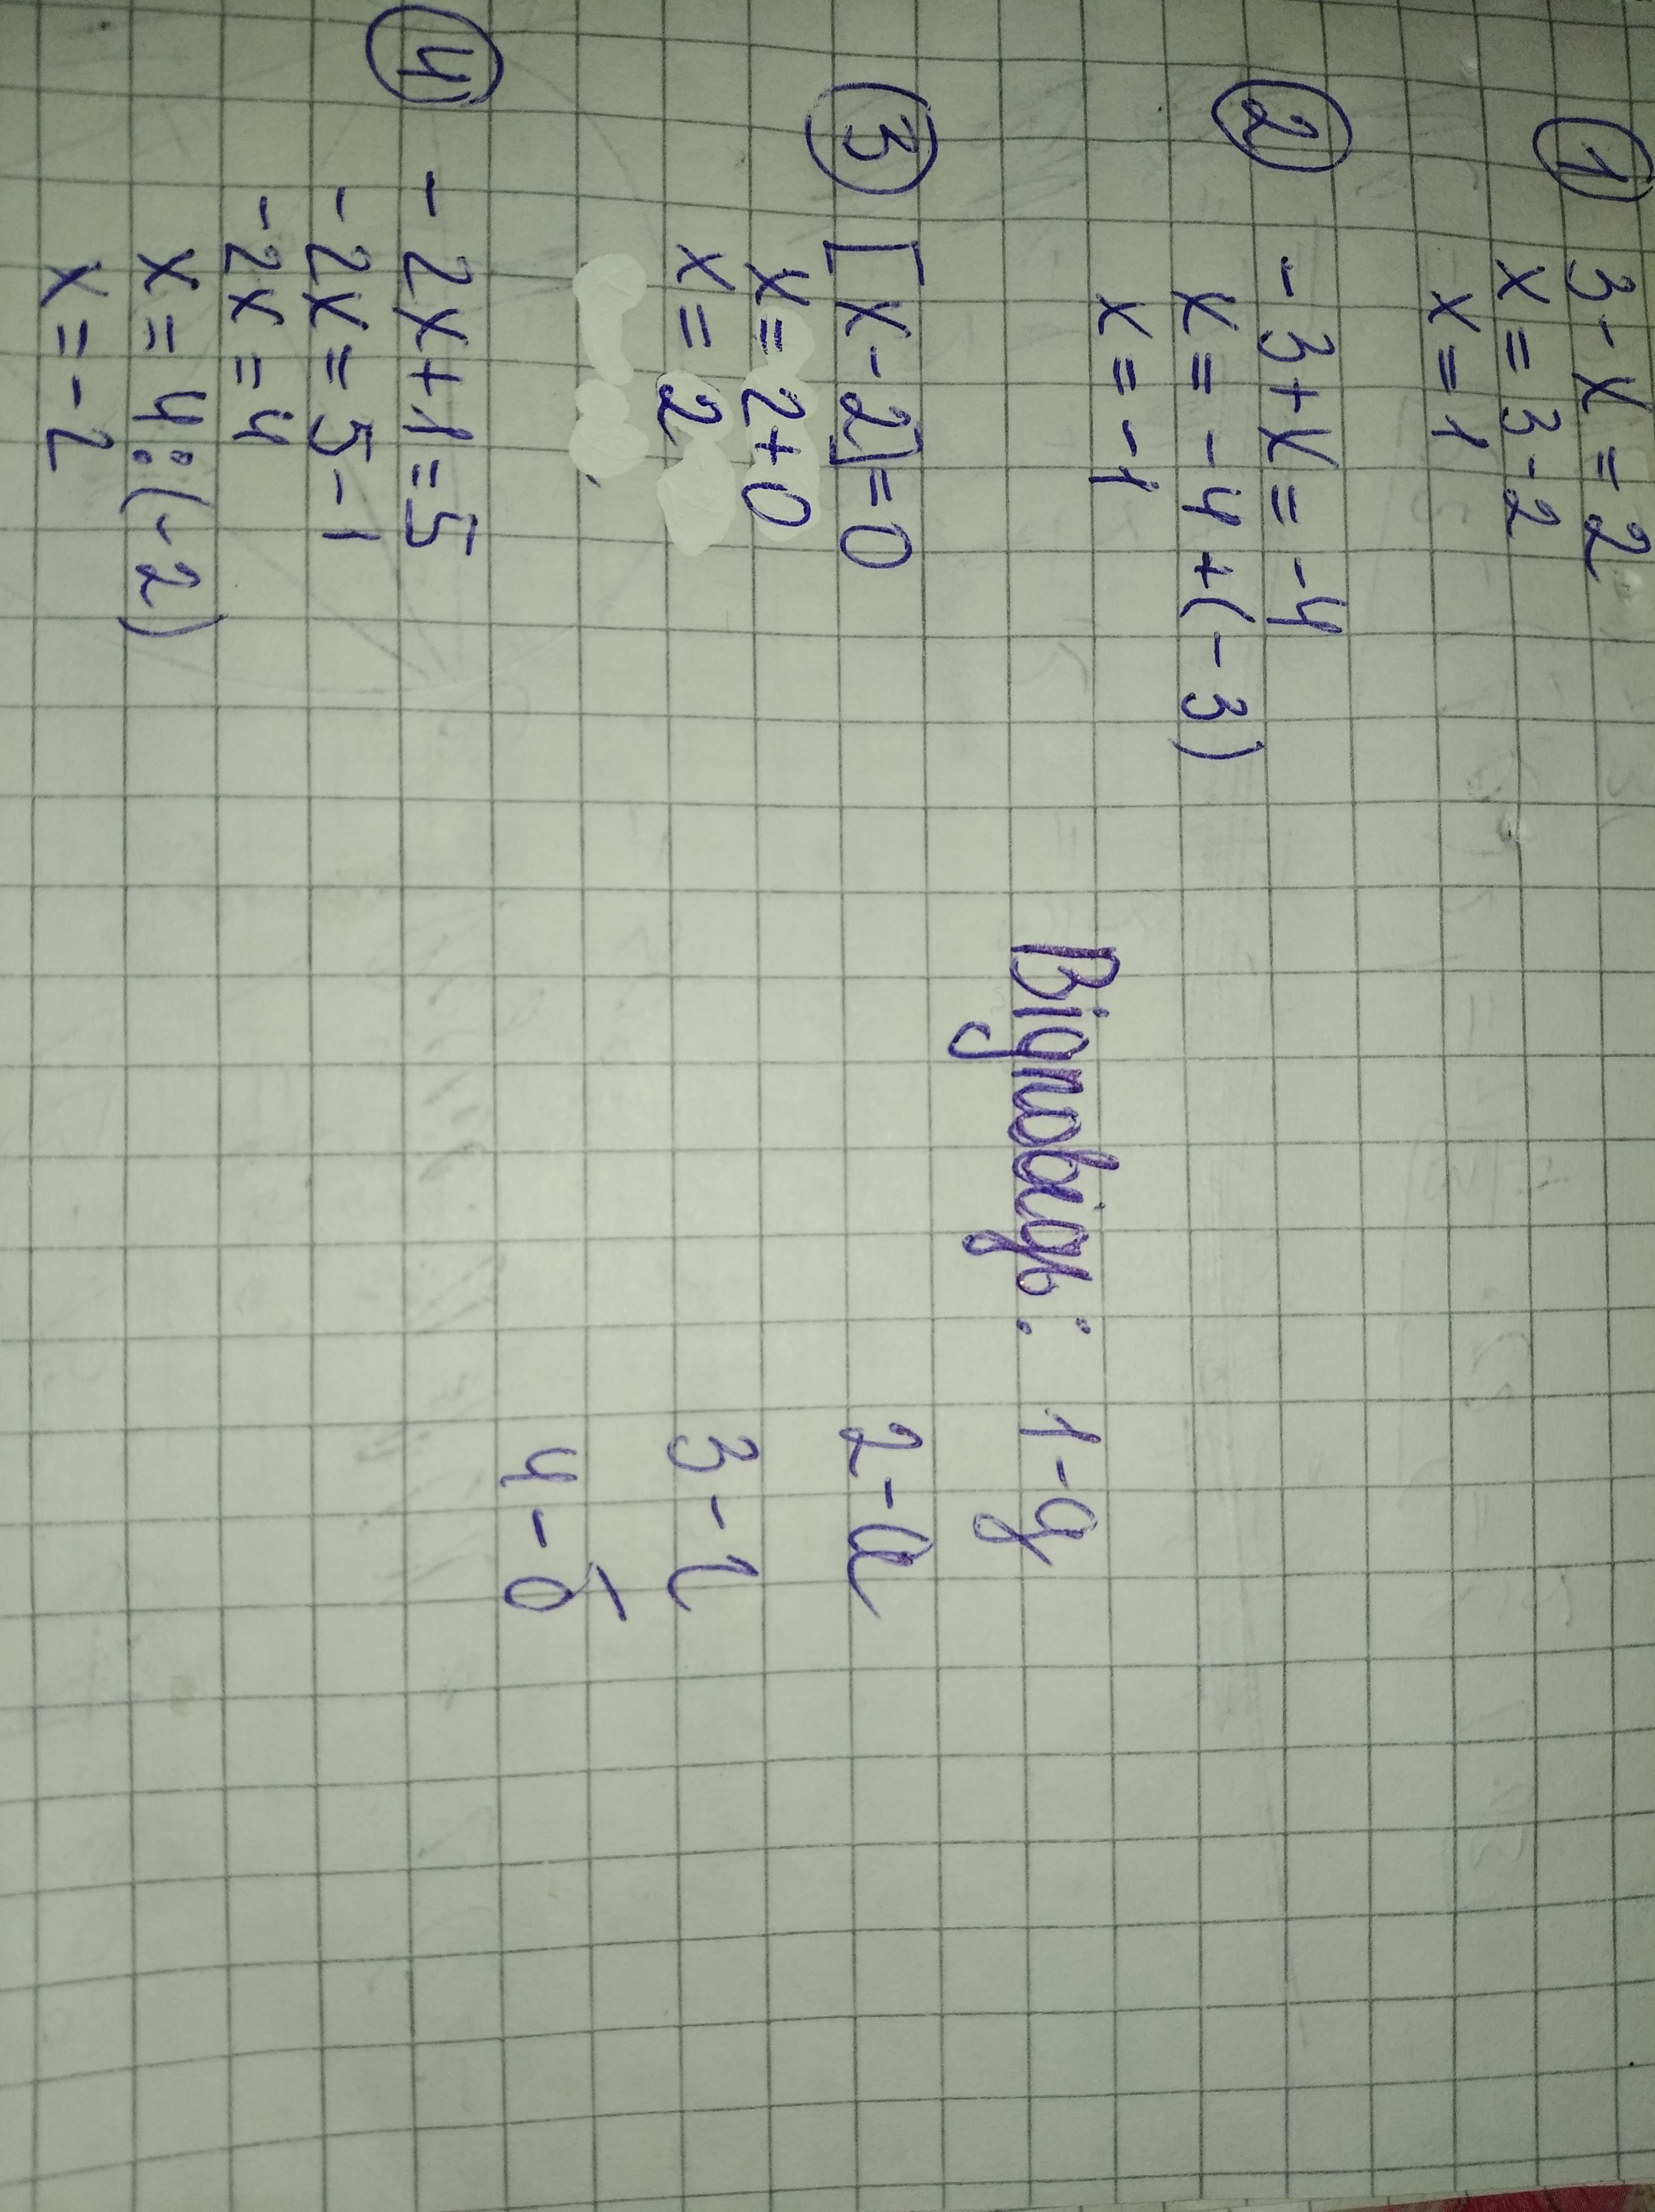 ① 3-x=2
x=3-2
x=1
② -3+x=-4
x=-4+(-3)
x=-1
③ [x-2]=0
x=2+0
x=2
④ -2x+1=5
-2x=5-1
-2x=4
x=4:(-2)
x=-2
Відповідь: 1-д
2-а
3-г
4-б